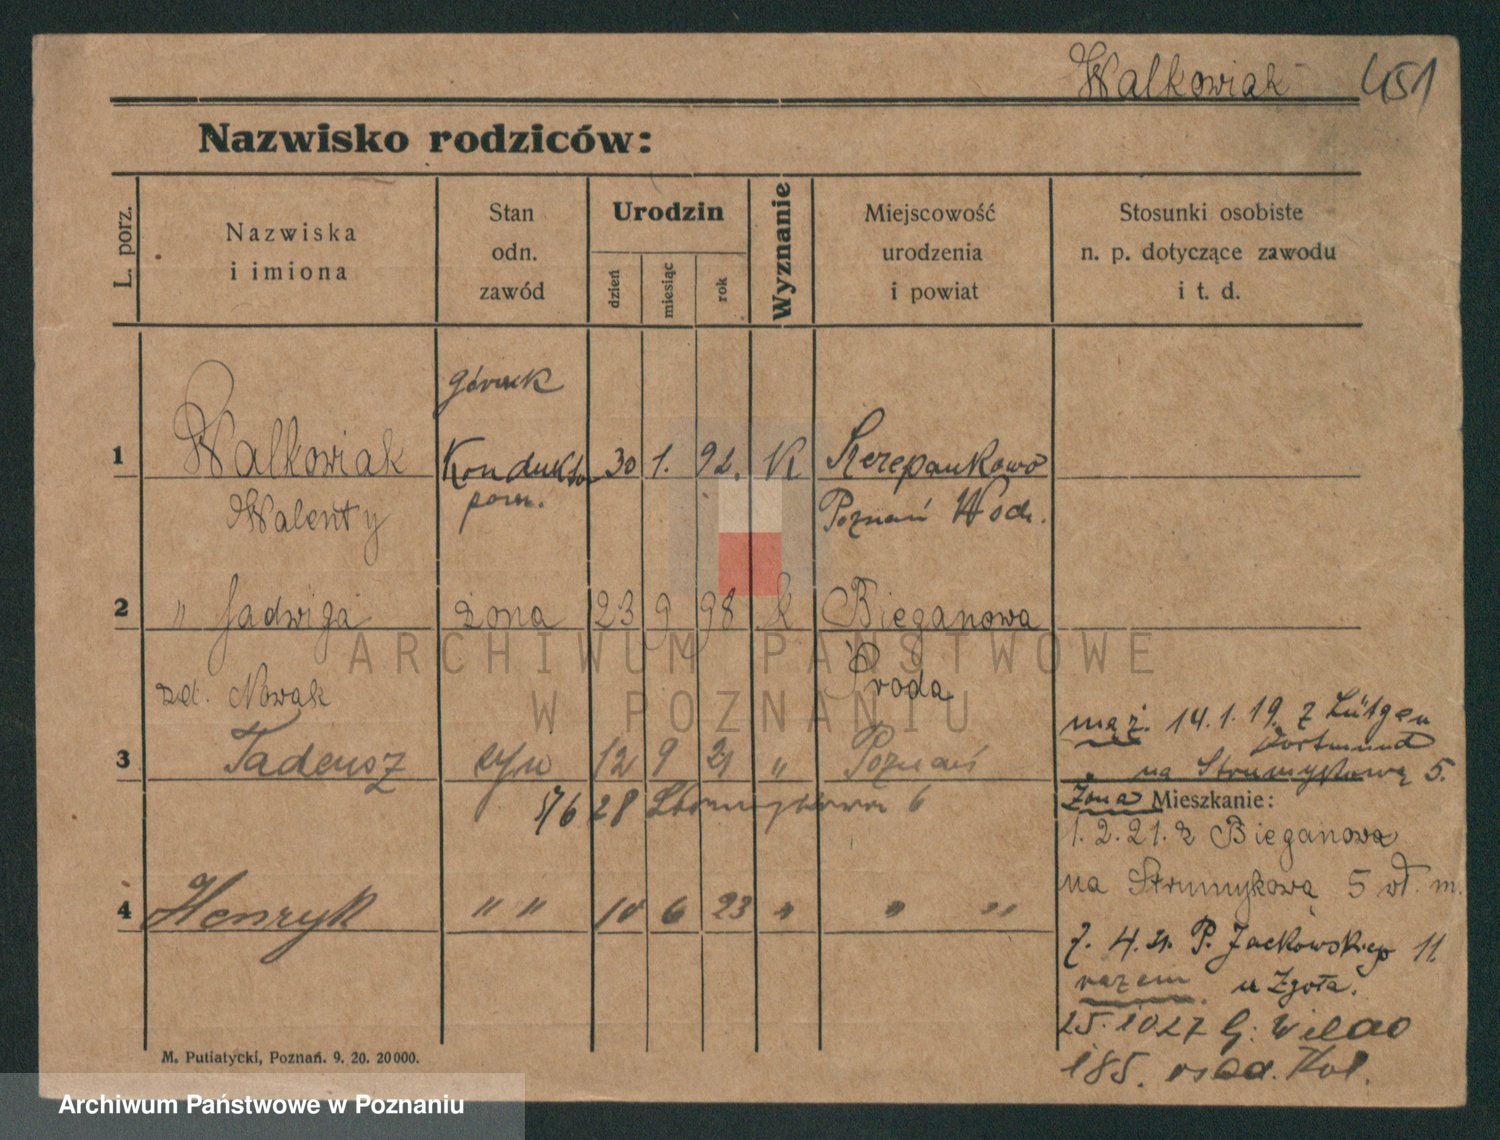 Walkowiak 451
Nazwisko rodziców:
L. porz.
Nazwiska
i imiona
Stan
odn.
zawód
Urodzin
dzień
miesiąc
rok
Wyznanie
Miejscowość
urodzenia
i powiat
Stosunki osobiste
n. p. dotyczące zawodu
i t. d.
górnik
1 Walkowiak Konduktor 30 1. 92. K
Walenty pom. Poznań Wsch.
2 " Jadwiga żona 23 9 98 k Bieganowa
zd. Nowak Środa
3 Tadeusz syn 12 9 21 " Poznań
5/6 28 Strumykowa 6
4 Henryk " " 10 6 23 " " "
mąż. 14.1.19. z Lütgen
Dortmund
na Strumykową 5.
Żona Mieszkanie:
1.2.21. z Bieganowa
na Strumykową 5 wł. m.
7. 4. 21. P. Jackowskiego 11.
razem u Zgoła.
25.10 27 G: Wilda
185. osad. Kol.
M. Putiatycki, Poznań. 9. 20. 20000.
ARCHIWUM PAŃSTWOWE
W POZNANIU
Archiwum Państwowe w Poznaniu